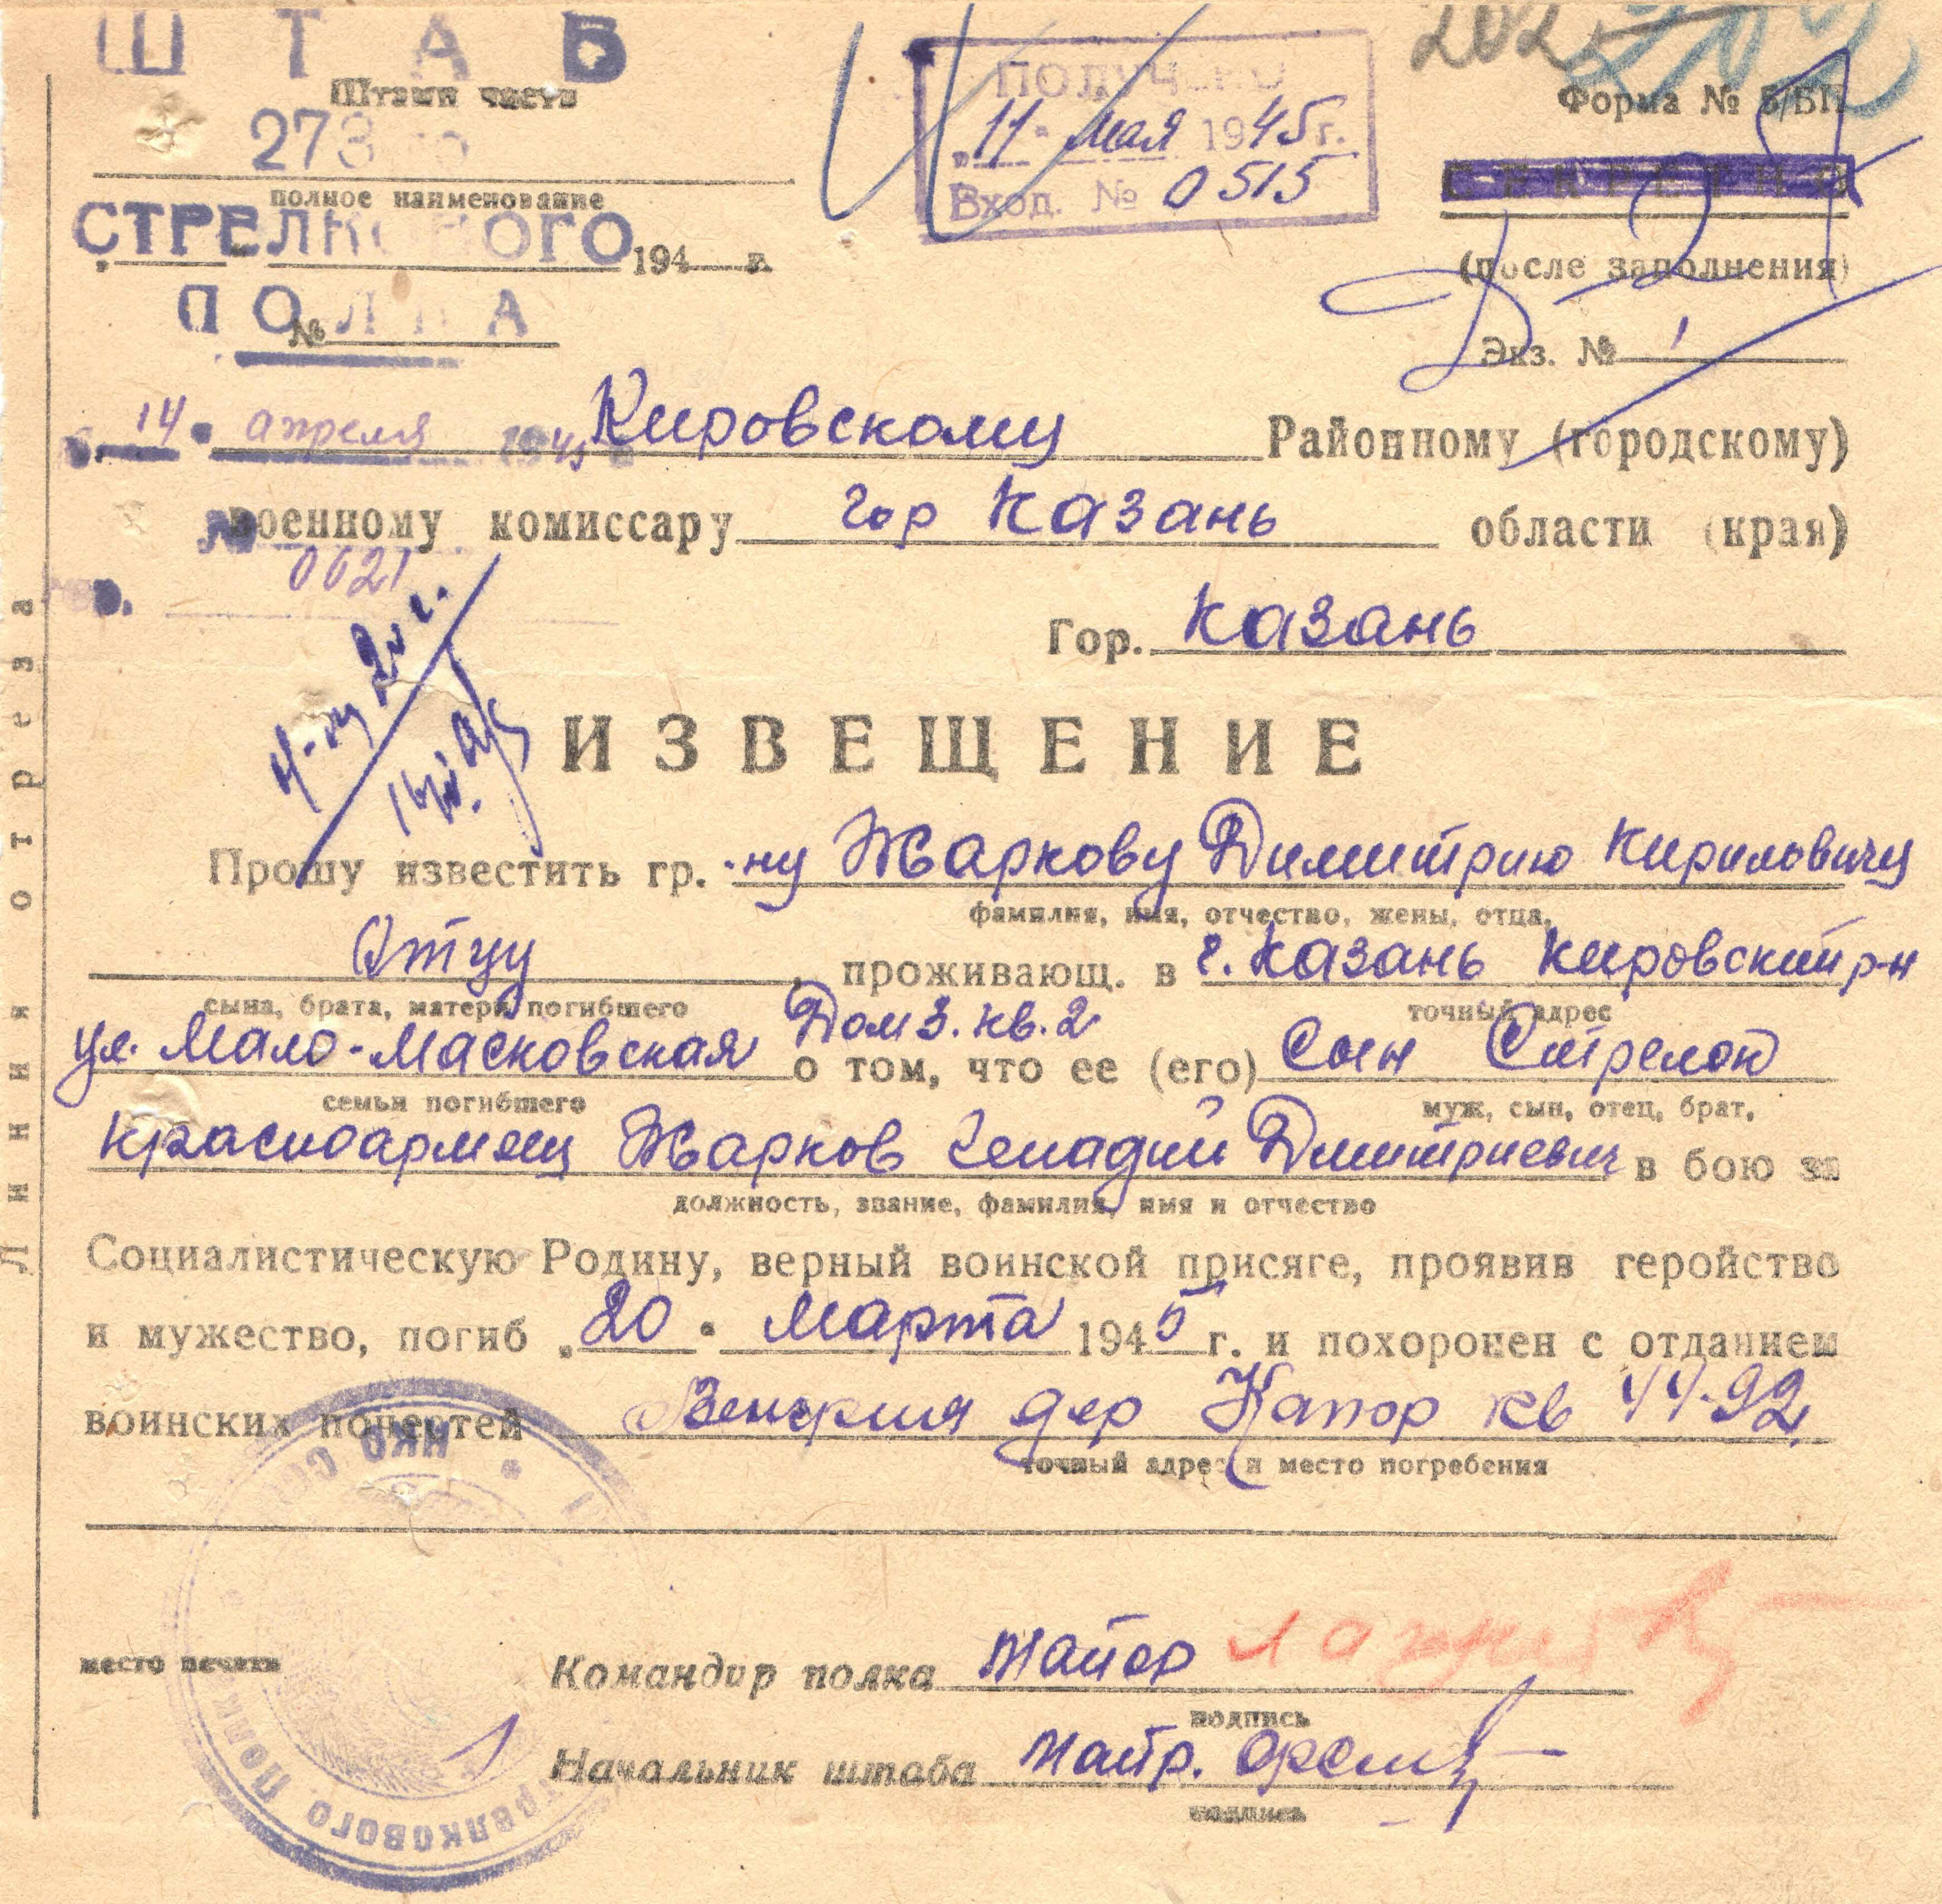 ШТАБ
Штамп части
273 го
полное наименование
СТРЕЛКОВОГО
194 г.
ПОЛКА
№
ПОЛУЧЕНО
"11" Мая 1945 г.
Вход. № 0515
202
Форма № Б/БП
СЕКРЕТНО
(после заполнения)
Экз. № 1
14 апреля 1945 Кировскому Районному (городскому)
военному комиссару гор Казань области (края)
№ 0621
Гор. Казань
ИЗВЕЩЕНИЕ
Прошу известить гр. -ну Жаркову Димитрию Кириловичу
фамилия, имя, отчество, жены, отца,
Отцу, проживающ. в г. Казань Кировский р-н
сына, брата, матери погибшего точный адрес
ул. Мало-Масковская Дом 3. кв. 2 о том, что ее (его) Сын Стрелок
семьи погибшего муж, сын, отец, брат,
красноармеец Жарков Генадий Дмитриевич в бою за
должность, звание, фамилия, имя и отчество
Социалистическую Родину, верный воинской присяге, проявив геройство
и мужество, погиб "20" Марта 1945 г. и похоронен с отданием
воинских почестей Венгрия дер Капор кв 44-92
точный адрес и место погребения
место печати
НКО СССР
Стрелкового Полка
Командир полка Майор
подпись
Начальник штаба Майр.
подпись
Линия отреза